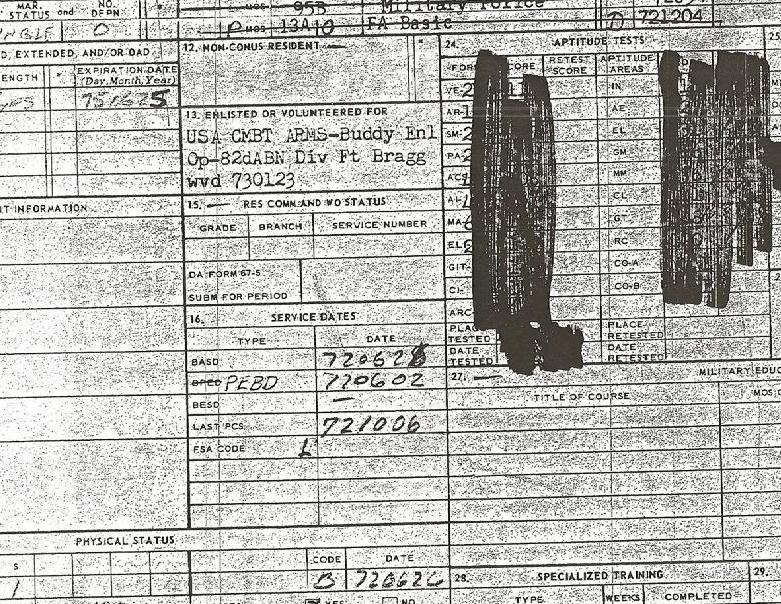 MAR. STATUS and NO. DEPN
95B Military Police
NGLE 0
P MOS 13A10 FA Basic
D 721204
D, EXTENDED, AND/OR OAD
ENGTH
EXPIRATION DATE
(Day, Month, Year)
12. NON-CONUS RESIDENT —
13. ENLISTED OR VOLUNTEERED FOR
USA CMBT ARMS-Buddy Enl
Op-82dABN Div Ft Bragg
wvd 730123
T INFORMATION
15. — RES COMM AND WO STATUS
GRADE BRANCH SERVICE NUMBER
DA FORM 67-5
SUBM FOR PERIOD
16. SERVICE DATES
TYPE DATE
BASD 720628
PEBD 720602
BESD —
LAST PCS 721006
FSA CODE L
PHYSICAL STATUS
S
1
CODE DATE
B 720626
YES NO
24. APTITUDE TESTS 25
FORM SCORE RETEST SCORE APTITUDE AREAS
VE-2 IN
AR-1 AE
SM-2 EL
PA-2 GM
AC MM
AL CL
MA GT
EL RC
GIT- CO-A
CI- CO-B
ARC
PLACE TESTED
PLACE RETESTED
DATE TESTED
DATE RETESTED
27. — MILITARY EDUC
TITLE OF COURSE MOS
28. SPECIALIZED TRAINING 29.
TYPE WEEKS COMPLETED